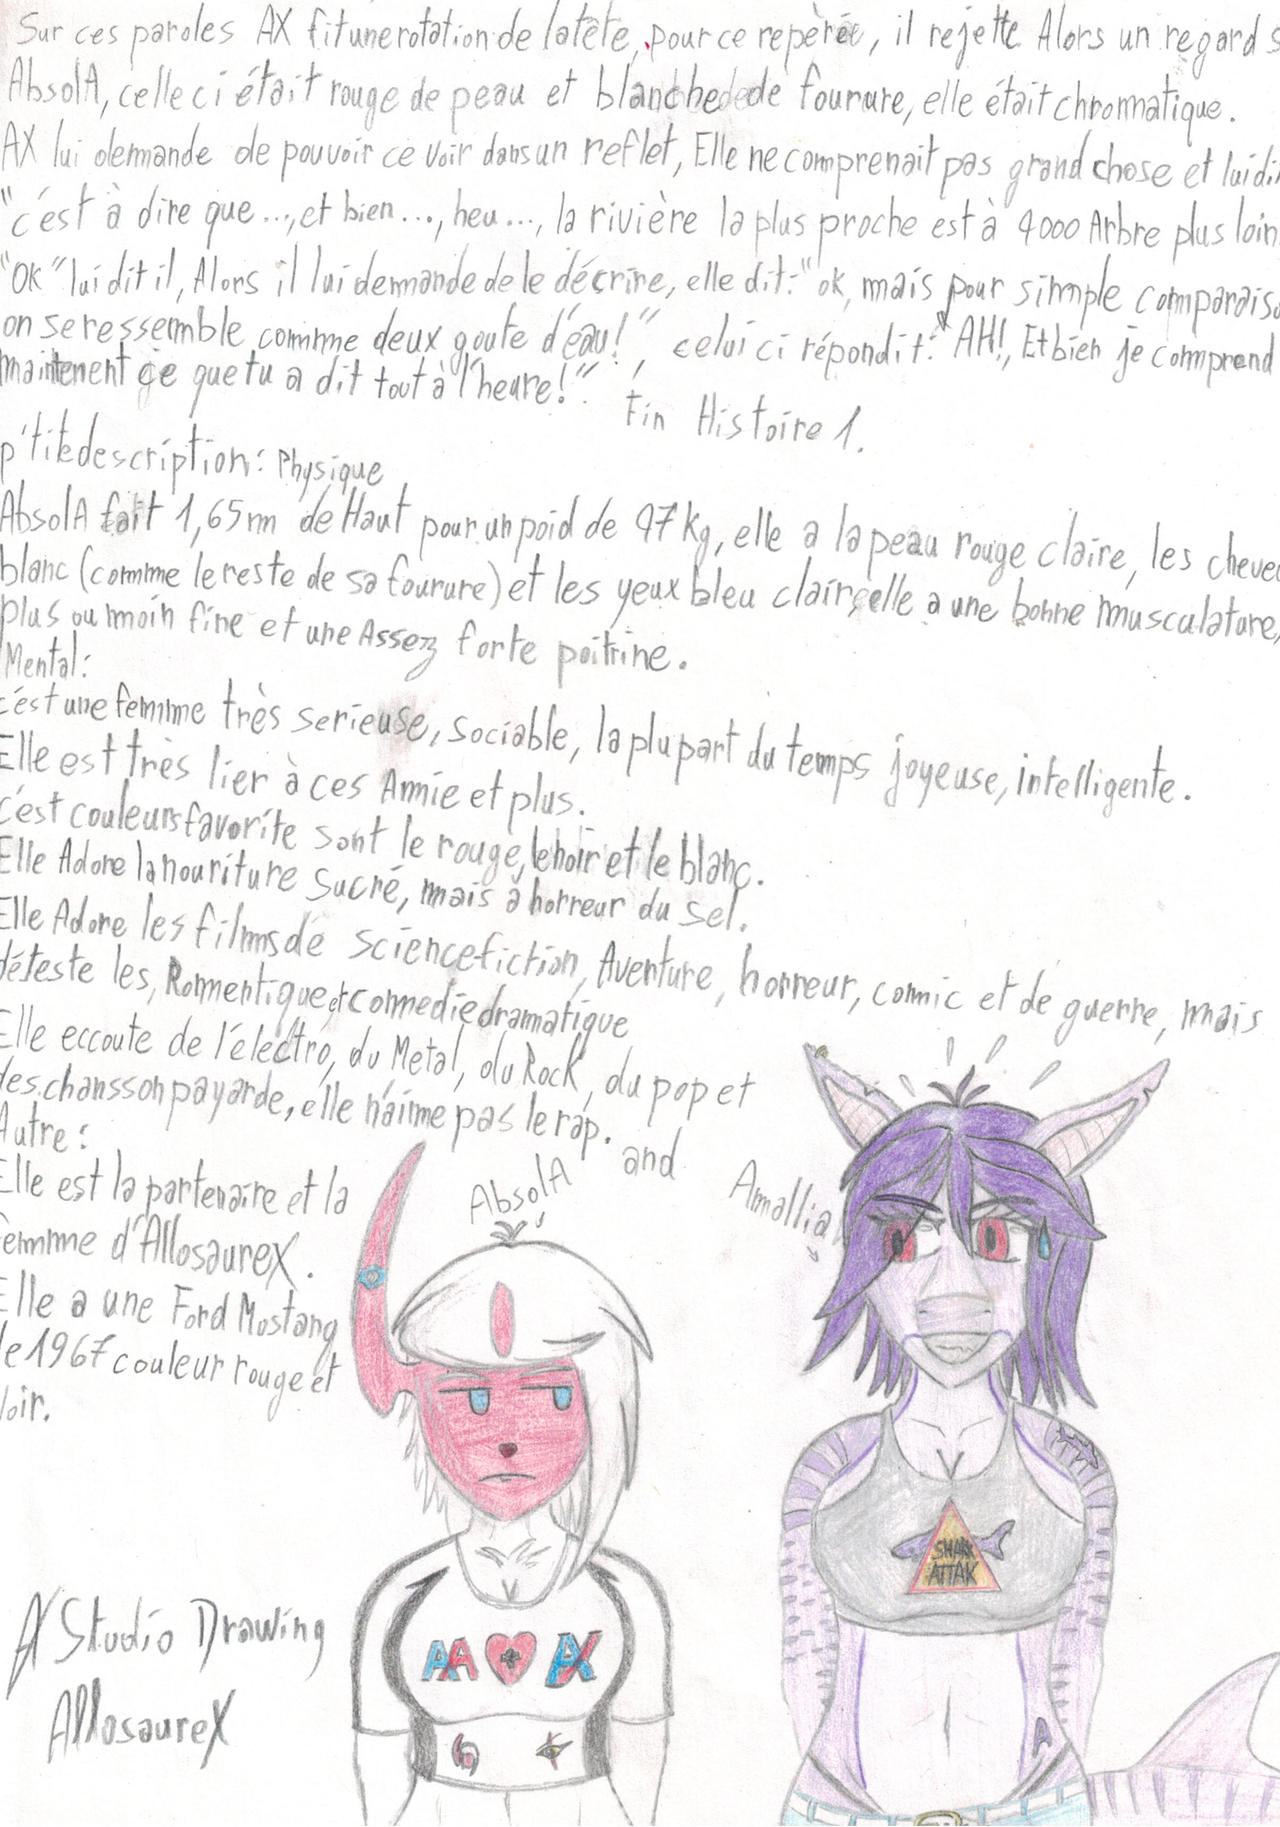 Sur ces paroles AX fit une rotation de la tête, pour ce repèrée, il rejette Alors un regard s
AbsolA, celle ci était rouge de peau et blanche de fourure, elle était chronmatique.
AX lui demande de pouvoir ce voir dans un reflet, Elle ne comprenait pas grand chose et lui di
"c'est à dire que ..., et bien ..., heu ..., la rivière la plus proche est à 4000 Arbre plus loin
"OK" lui dit il, Alors il lui demmande de le décrire, elle dit: "ok, mais pour simple comparaiso
on se ressemble comme deux goute d'éau!", celui ci répondit: "AH!, Et bien je comprend
maintenent çe que tu a dit tout à l'heure!"
Fin Histoire 1.
p'tite description: Physique
AbsolA fait 1,65m de Haut pour un poid de 97Kg, elle a la peau rouge claire, les cheveu
blanc (comme le reste de sa fourure) et les yeux bleu claire, elle a une bonne musculature,
plus ou moin fine et une Assez forte poitrine.
Mental:
c'est une femme très serieuse, sociable, la plupart du temps joyeuse, intelligente.
Elle est très lier à ces Amie et plus.
c'est couleurs favorite sont le rouge, le noir et le blanc.
Elle Adore la nouriture sucré, mais à horreur du sel.
Elle Adore les films de science fiction, Aventure, horreur, comic et de guerre, mais
déteste les, Romentique et commedie dramatique
Elle eccoute de l'éléctro, du Metal, du Rock, du pop et
des chansson payarde, elle n'aime pas le rap.
Autre:
Elle est la partenaire et la
femme d'AllosaureX.
Elle a une Ford Mostang
de 1967 couleur rouge et
noir.
AbsolA and Amallia
SHARK
ATTAK
AA AX
A
AX Studio Drawing
AllosaureX